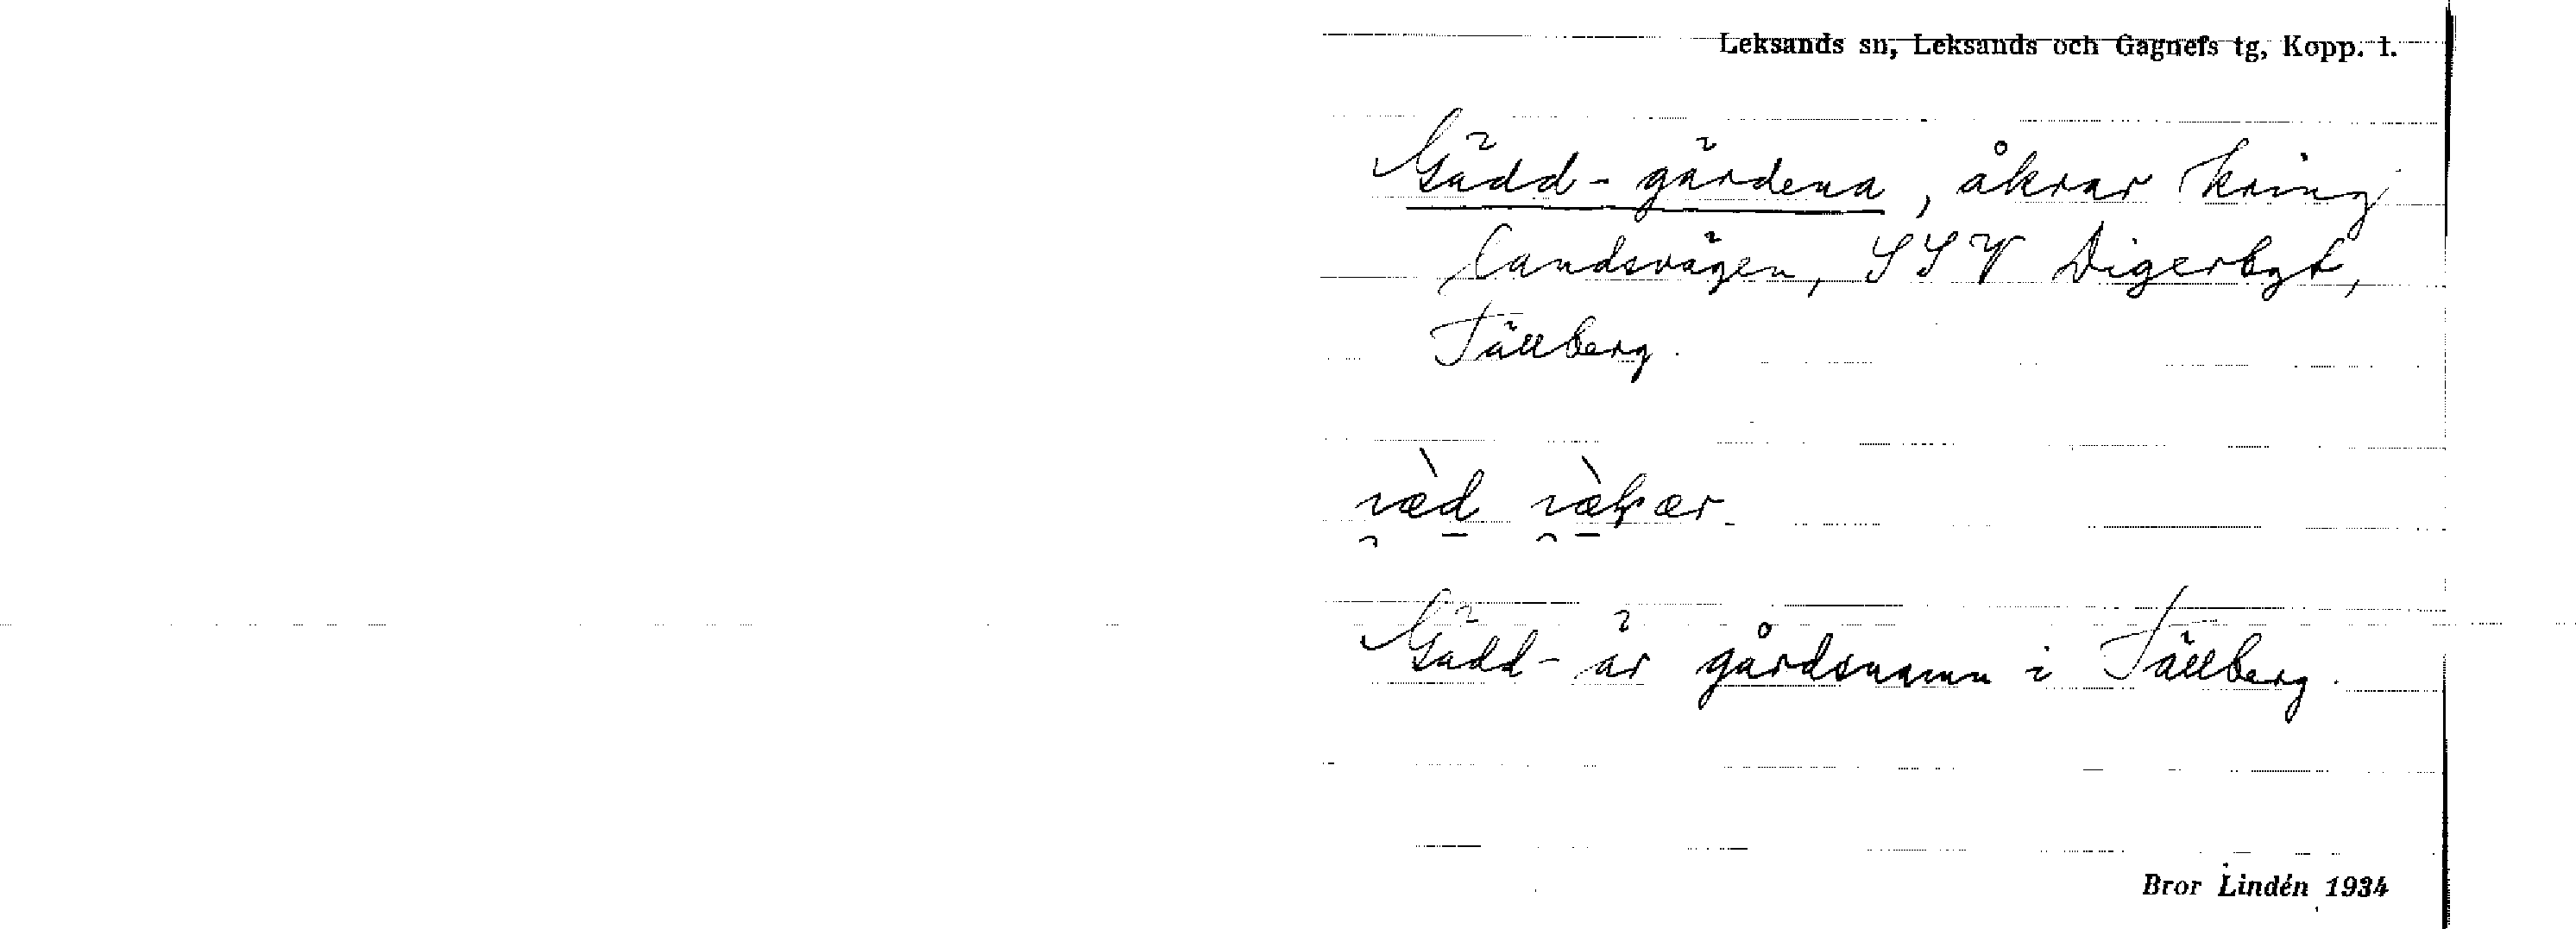 Leksands sn, Leksands och Gagnefs tg, Kopp. l.
Gädd-gärdena, åkrar kring
landsvägen, SSV Digerbgt,
Tällberg.
Gädd- är gårdsnamn i Tällberg.
Bror Lindén 1934